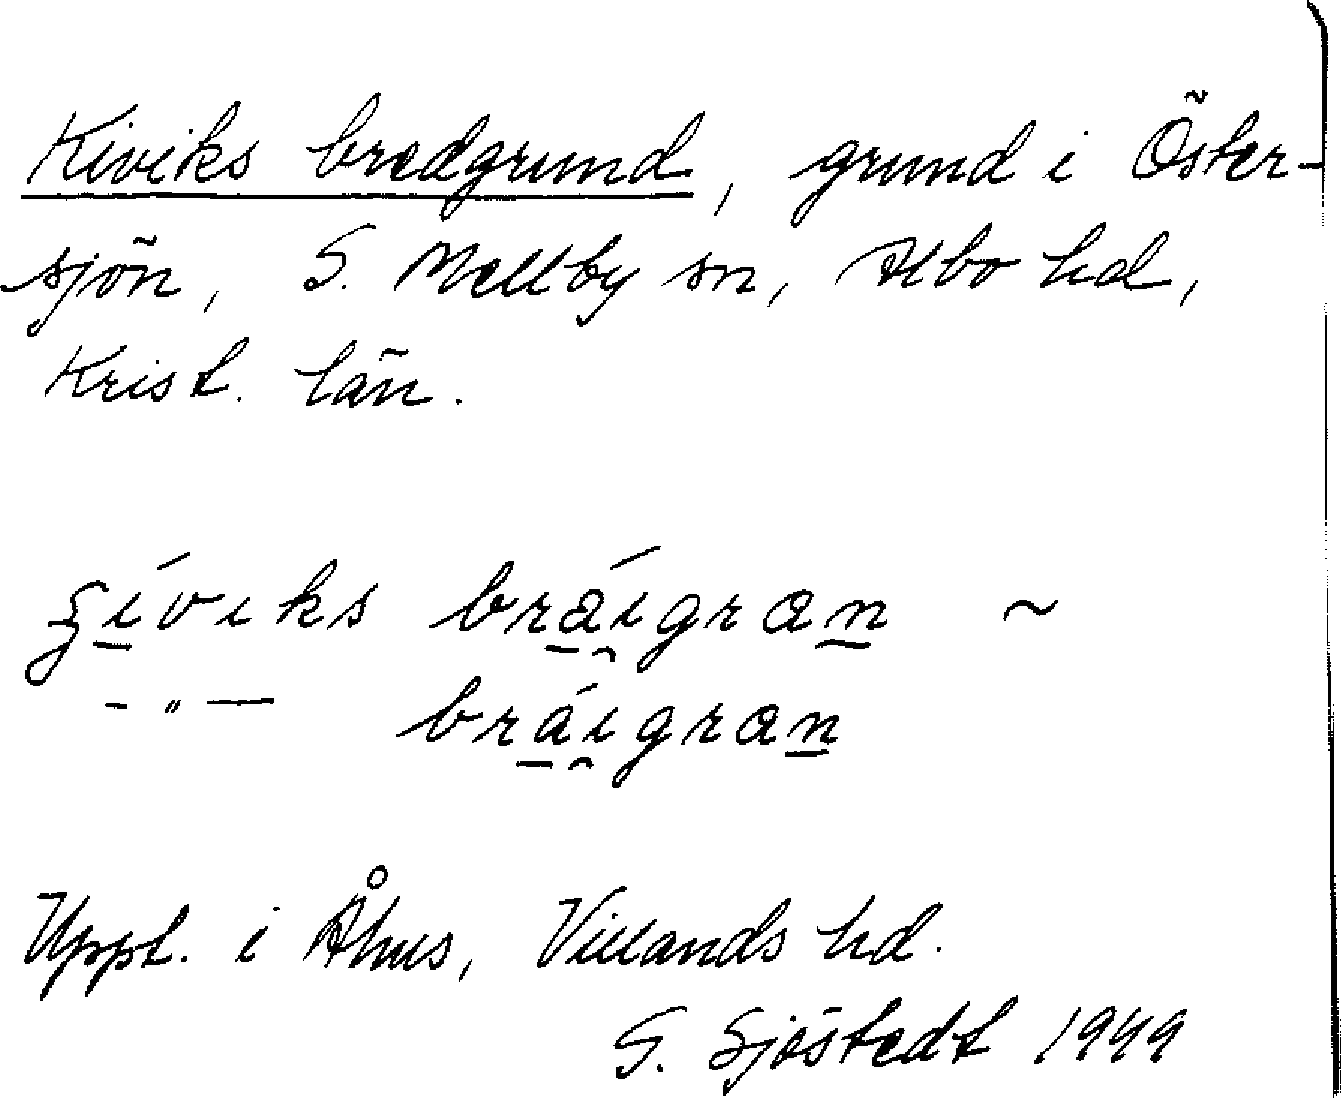 Kiviks bredgrund, grund i Öster-
sjön, S. Mellby sn, Albo hd,
Krist. län.
ʒíviks bráigran ~
- " — bráigran
Uppt. i Åhus, Villands hd.
G. Sjöstedt 1949